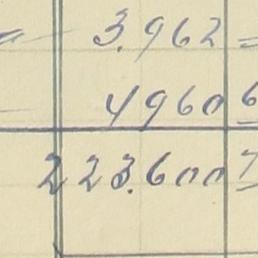 3.962 =
4960 6
223.600 7